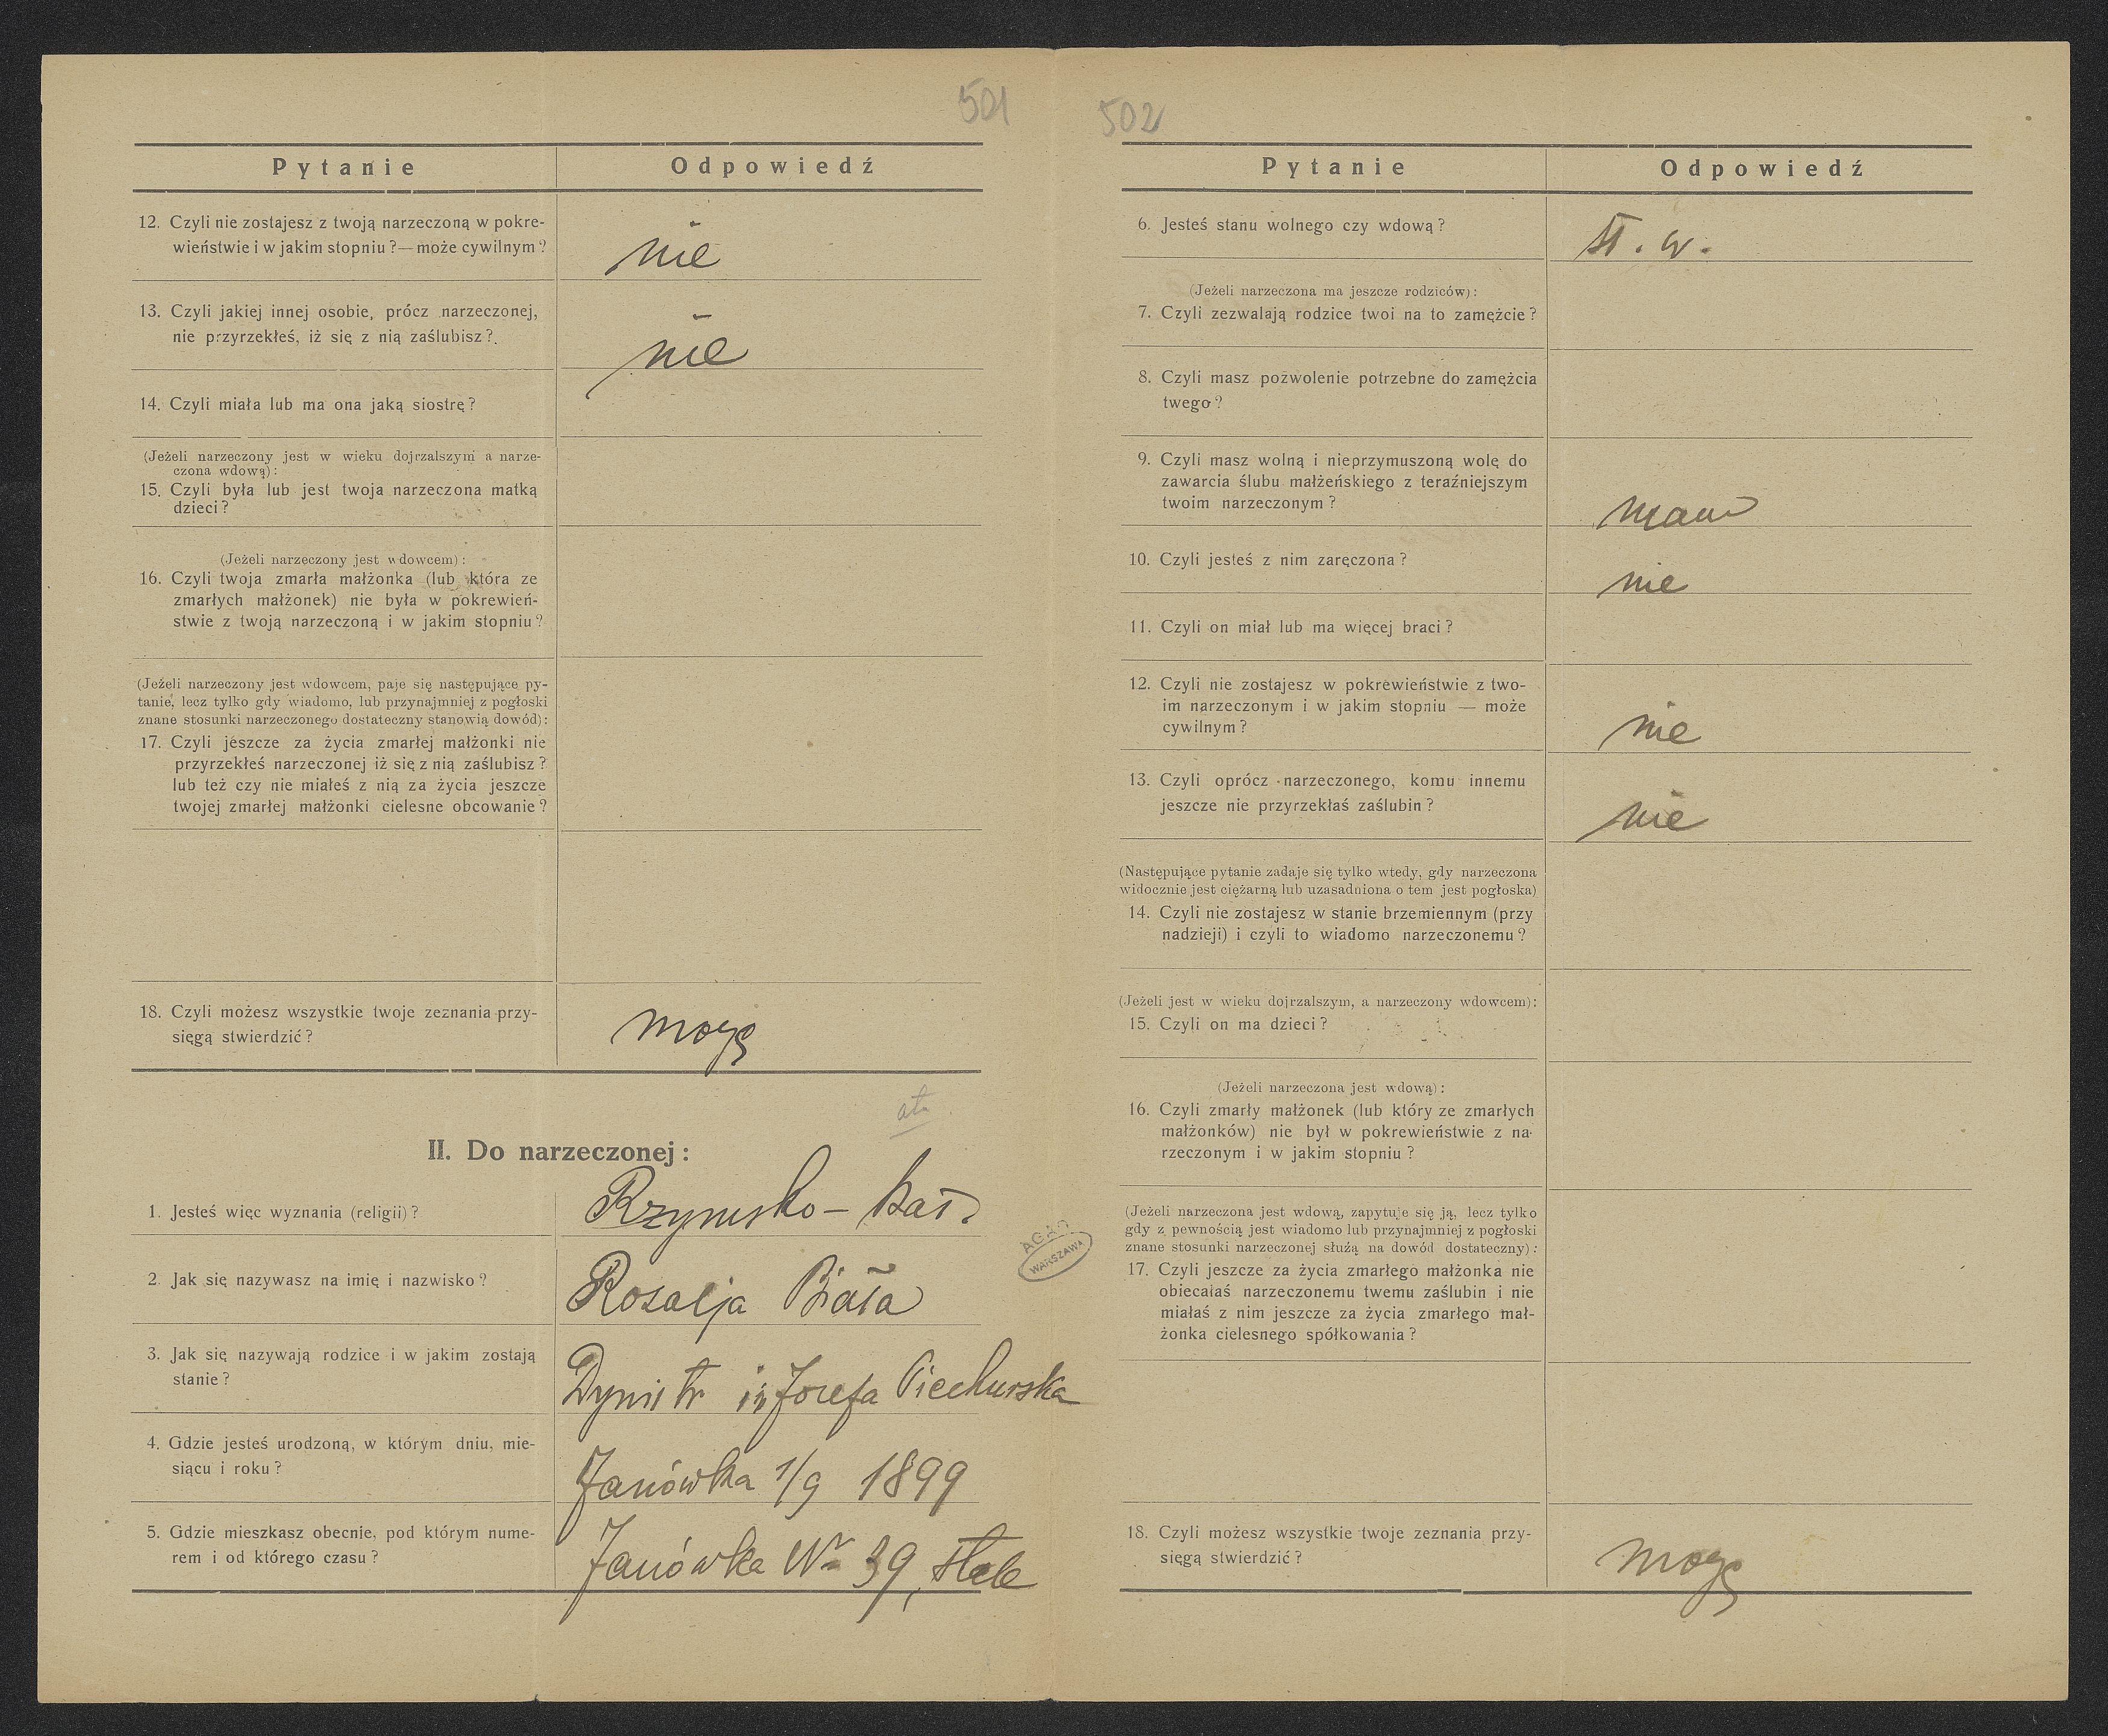 501
Pytanie Odpowiedź
12. Czyli nie zostajesz z twoją narzeczoną w pokre-
wieństwie i w jakim stopniu ?— może cywilnym ?
nie
13. Czyli jakiej innej osobie, prócz narzeczonej,
nie przyrzekłeś, iż się z nią zaślubisz ?
nie
14. Czyli miała lub ma ona jaką siostrę ?
(Jeżeli narzeczony jest w wieku dojrzalszym a narze-
czona wdową) :
15. Czyli była lub jest twoja narzeczona matką
dzieci ?
(Jeżeli narzeczony jest wdowcem) :
16. Czyli twoja zmarła małżonka (lub która ze
zmarłych małżonek) nie była w pokrewień-
stwie z twoją narzeczoną i w jakim stopniu ?
(Jeżeli narzeczony jest wdowcem, paje się następujące py-
tanie, lecz tylko gdy wiadomo, lub przynajmniej z pogłoski
znane stosunki narzeczonego dostateczny stanowią dowód) :
17. Czyli jeszcze za życia zmarłej małżonki nie
przyrzekłeś narzeczonej iż się z nią zaślubisz ?
lub też czy nie miałeś z nią za życia jeszcze
twojej zmarłej małżonki cielesne obcowanie ?
18. Czyli możesz wszystkie twoje zeznania przy-
sięgą stwierdzić ?
mogę
II. Do narzeczonej :
1. Jesteś więc wyznania (religii) ?
Rzymsko – kat.
2. Jak się nazywasz na imię i nazwisko ?
Rosalja Biała
3. Jak się nazywają rodzice i w jakim zostają
stanie ?
Dymitr i Jozefa Piechurska
4. Gdzie jesteś urodzoną, w którym dniu, mie-
siącu i roku ?
Janówka 1/9 1899
5. Gdzie mieszkasz obecnie, pod którym nume-
rem i od którego czasu ?
Janówka Nr 39, stale
AGAD
WARSZAWA
502
Pytanie Odpowiedź
6. Jesteś stanu wolnego czy wdową ?
st. w.
(Jeżeli narzeczona ma jeszcze rodziców) :
7. Czyli zezwalają rodzice twoi na to zamężcie ?
8. Czyli masz pozwolenie potrzebne do zamężcia
twego ?
9. Czyli masz wolną i nieprzymuszoną wolę do
zawarcia ślubu małżeńskiego z teraźniejszym
twoim narzeczonym ?
mam
10. Czyli jesteś z nim zaręczona ?
nie
11. Czyli on miał lub ma więcej braci ?
12. Czyli nie zostajesz w pokrewieństwie z two-
im narzeczonym i w jakim stopniu — może
cywilnym ?
nie
13. Czyli oprócz narzeczonego, komu innemu
jeszcze nie przyrzekłaś zaślubin ?
nie
(Następujące pytanie zadaje się tylko wtedy, gdy narzeczona
widocznie jest ciężarną lub uzasadniona o tem jest pogłoska)
14. Czyli nie zostajesz w stanie brzemiennym (przy
nadzieji) i czyli to wiadomo narzeczonemu ?
(Jeżeli jest w wieku dojrzalszym, a narzeczony wdowcem) :
15. Czyli on ma dzieci ?
(Jeżeli narzeczona jest wdową) :
16. Czyli zmarły małżonek (lub który ze zmarłych
małżonków) nie był w pokrewieństwie z na-
rzeczonym i w jakim stopniu ?
(Jeżeli narzeczona jest wdową, zapytuje się ją, lecz tylko
gdy z pewnością jest wiadomo lub przynajmniej z pogłoski
znane stosunki narzeczonej służą na dowód dostateczny) :
17. Czyli jeszcze za życia zmarłego małżonka nie
obiecałaś narzeczonemu twemu zaślubin i nie
miałaś z nim jeszcze za życia zmarłego mał-
żonka cielesnego spółkowania ?
18. Czyli możesz wszystkie twoje zeznania przy-
sięgą stwierdzić ?
mogę